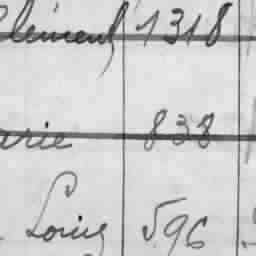 Clément 1318
arie 838
Louis 596